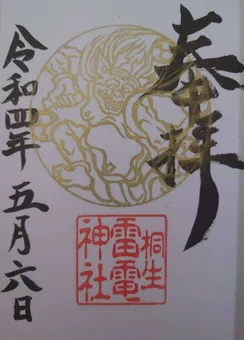 奉拝
桐生
雷電
神社
令和四年 五月六日